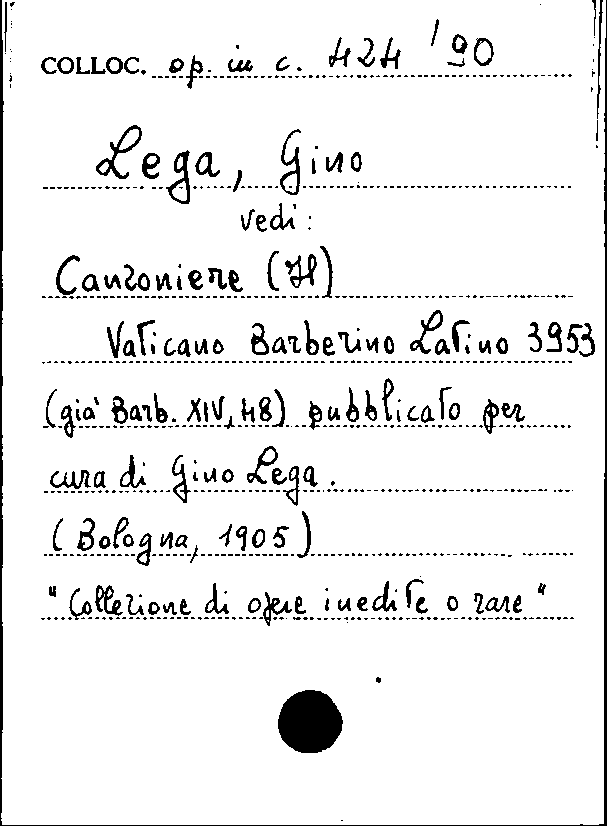 COLLOC. op. in c. 424 '90
Lega, Gino
vedi:
Canzoniere (Il)
Vaticano Barberino Latino 3953
(già Barb. XIV, 48) pubblicato per
cura di Gino Lega.
(Bologna, 1905)
"Collezione di opere inedite o rare"